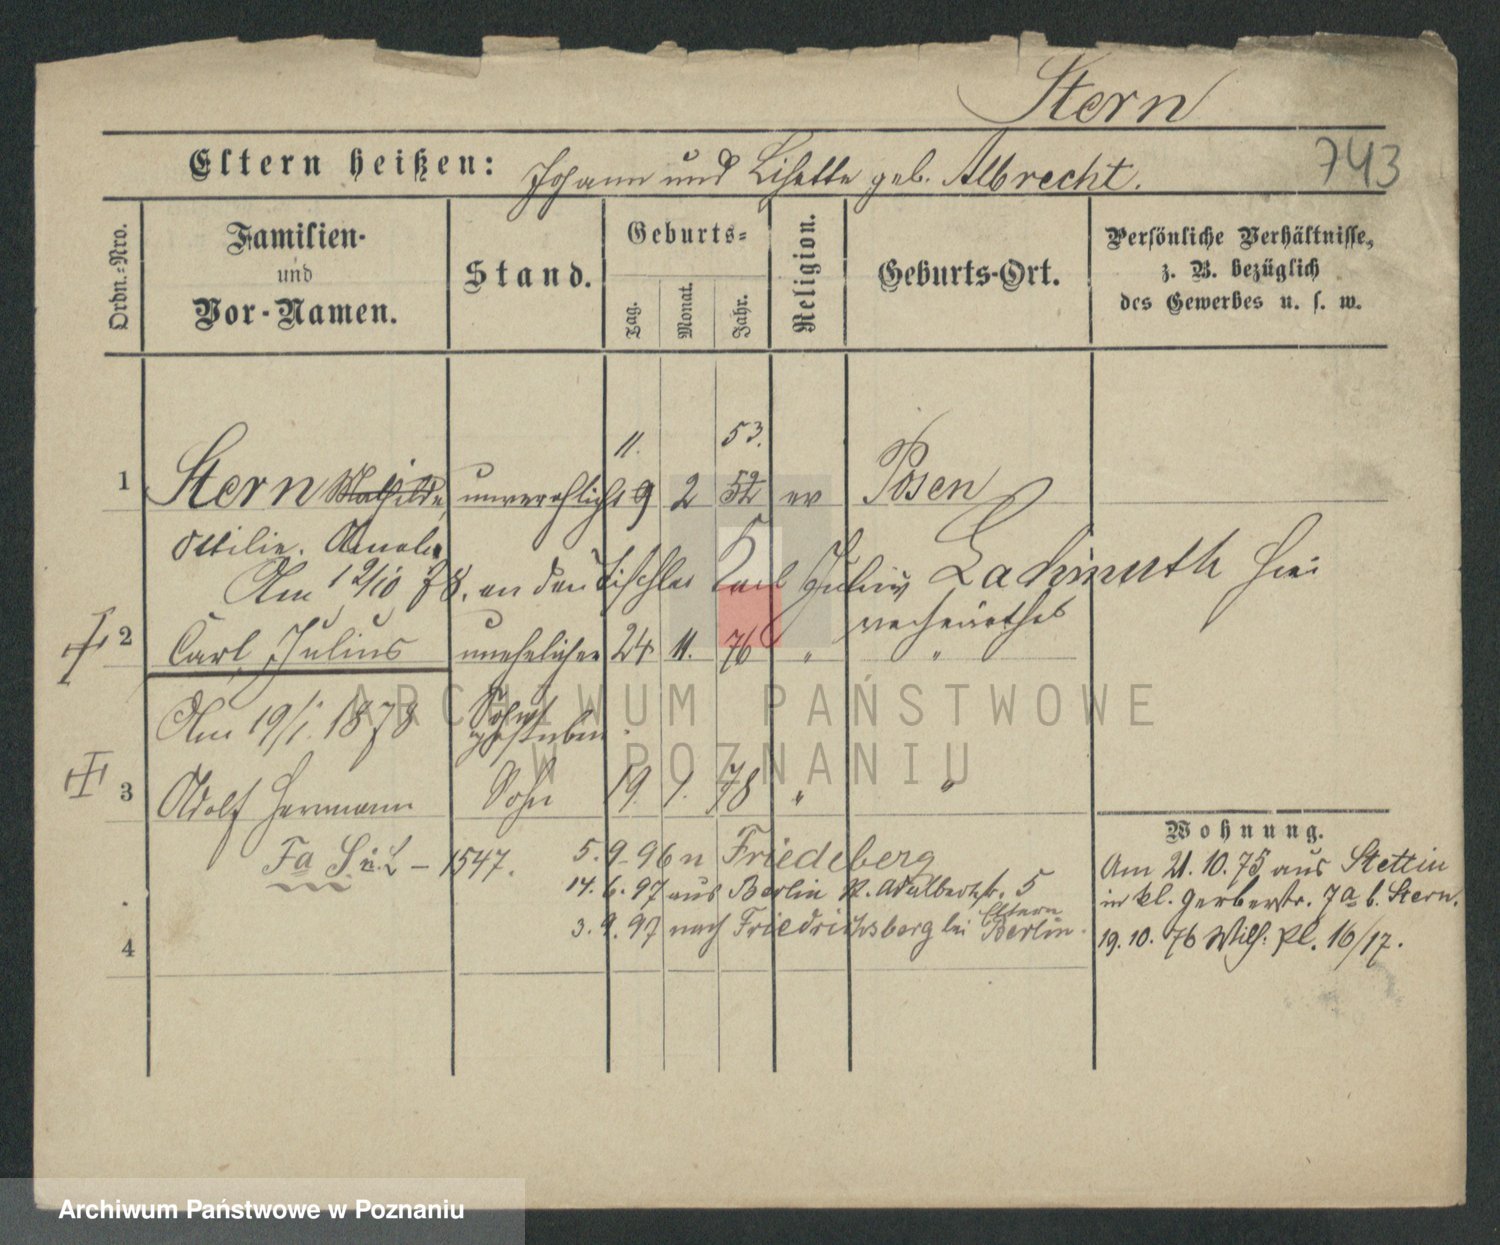 Stern
743
Eltern heißen: Johann und Lisette geb. Albrecht.
Ordn.-Nro.
Familien-
und
Vor-Namen.
Stand.
Geburts-
Tag.
Monat.
Jahr.
Religion.
Geburts-Ort.
Persönliche Verhältnisse,
z. B. bezüglich
des Gewerbes u. s. w.
11. 53.
1 Stern Mathilde, unverehlicht 9 2 52 ev Posen
Ottilie. Amalie
Am 12/10 78. an den Tischler Carl Julius Lachmuth hier
verheirathet
2 Carl Julius unehelicher 24. 11. 76 " "
Am 19/1. 1878 Sohn
gestorben
3 Adolf Hermann Sohn 19. 1. 78 " "
Fa S.u.L - 1547.
5. 9. 96 n Friedeberg
14. 6. 97 aus Berlin n. Adalbertstr. 5
3. 9. 97 nach Friedrichsberg bei Berlin.
Eltern
4
Wohnung.
Am 21. 10. 75 aus Stettin
in kl. Gerberstr. 7a b. Stern.
19. 10. 76 Wilh. Pl. 16/17.
ARCHIWUM PAŃSTWOWE
W POZNANIU
Archiwum Państwowe w Poznaniu